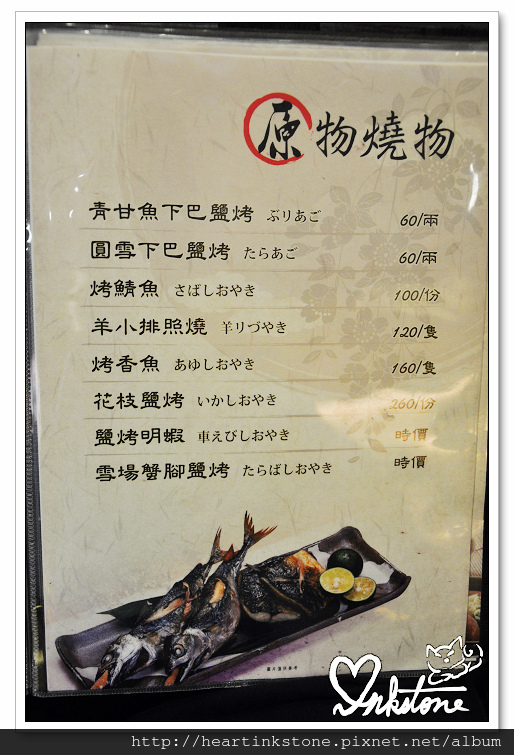 原物燒物
青甘魚下巴鹽烤 ぶりあご 60/兩
圓雪下巴鹽烤 たらあご 60/兩
烤鯖魚 さばしおやき 100/份
羊小排照燒 羊りづやき 120/隻
烤香魚 あゆしおやき 160/隻
花枝鹽烤 いかしおやき 260/份
鹽烤明蝦 車えびしおやき 時價
雪場蟹腳鹽烤 たらばしおやき 時價
圖片僅供參考
Inkstone
http://heartinkstone.pixnet.net/album